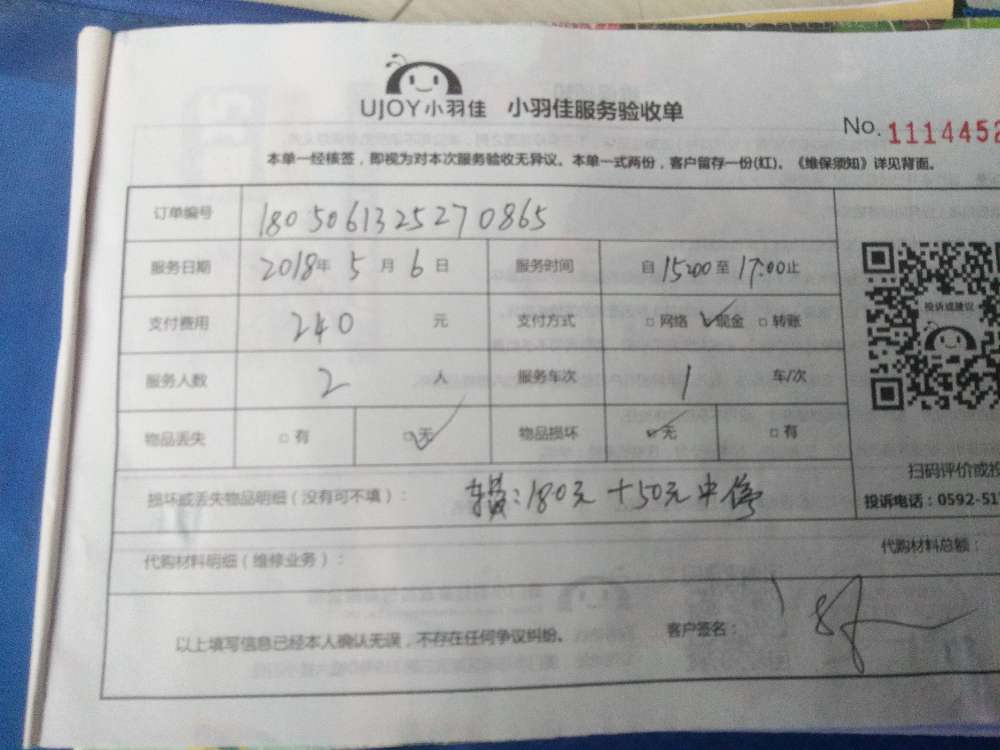 UJOY小羽佳 小羽佳服务验收单
No. 1114452
本单一经核签，即视为对本次服务验收无异议。本单一式两份，客户留存一份(红)。《维保须知》详见背面。
订单编号 1805061325270865
服务日期 2018年 5 月 6 日 服务时间 自 15:00 至 17:00止
支付费用 240 元 支付方式 □ 网络 ✓现金 □ 转账
服务人数 2 人 服务车次 1 车/次
物品丢失 □ 有 □✓无 物品损坏 □✓无 □ 有
投诉或建议
扫码评价或投
投诉电话：0592-51
损坏或丢失物品明细（没有可不填）： 车费：180元+50元中停
代购材料明细（维修业务）： 代购材料总额：
以上填写信息已经本人确认无误，不存在任何争议纠纷。 客户签名：